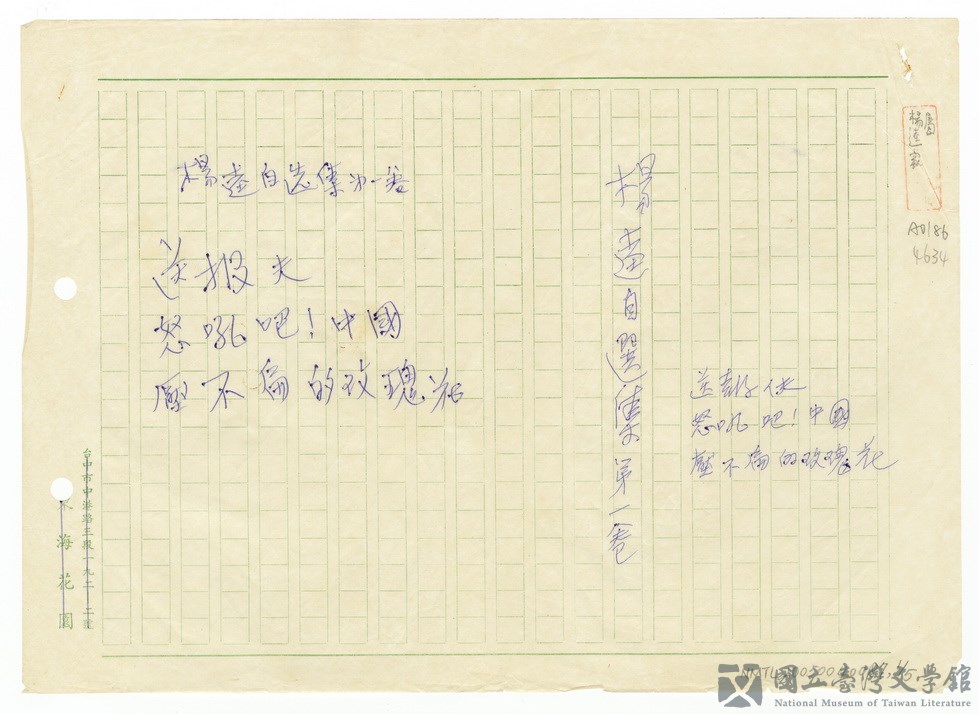 楊逵自选集第一卷
送报夫
怒吼吧！中國
壓不扁的玫瑰花
楊逵自選集第一卷
送報伕
怒吼吧！中國
壓不扁的玫瑰花
楊逵家屬
A0186
4634
台中市中港路三段一九二-二號
東海花園
國立臺灣文學館
National Museum of Taiwan Literature